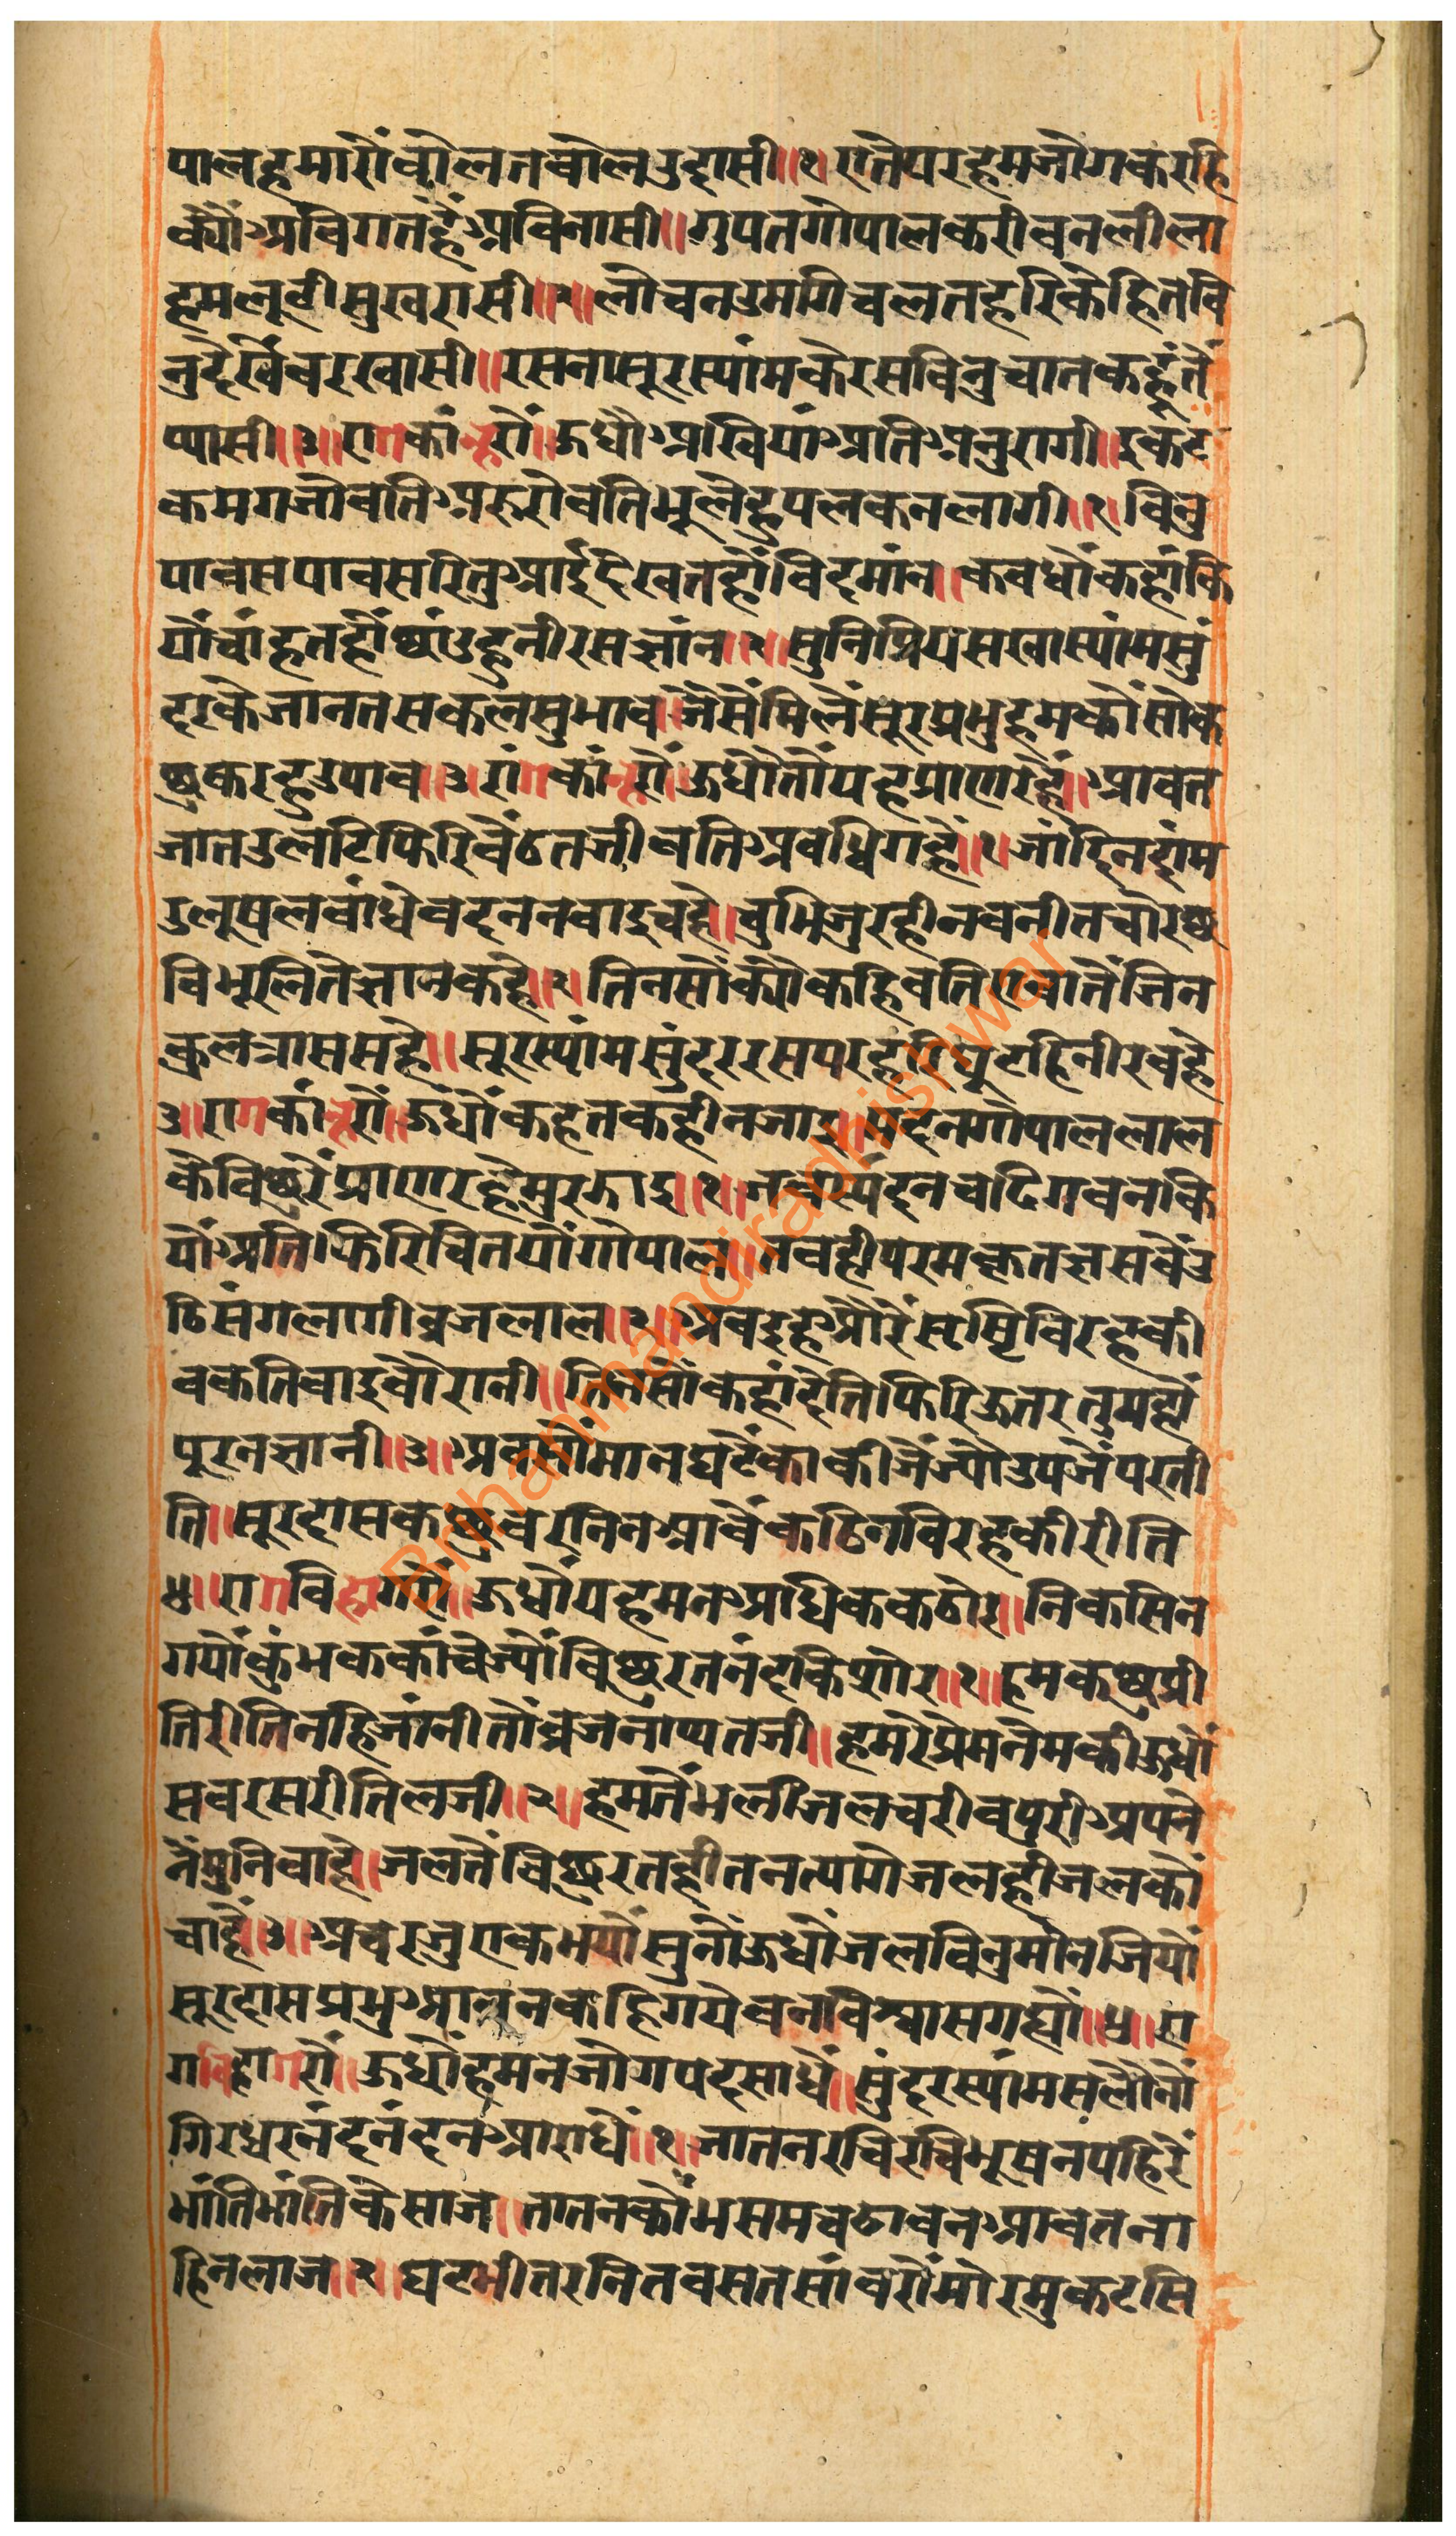 पालहमारोंबोलतबोलउदासी॥१॥एतेपरहमजोगकरहि
क्योंअविगतहैंअविनासी॥गुपतगोपालकरीबनलीला
हमलूटीसुखरासी॥२॥लोचनउमगिचलतहरिकेहितबि
नुदेखैंबरखासी॥रसनासूरस्यांमकेरसबिनुचातकहूंतें
प्यासी॥३॥रागकांन्हरों॥ऊधौअखियांअतिअनुरागी॥इकट
कमगजोवतिअरुरोवतिभूलेहुपलकनलागी॥१॥बिनु
पावसपावसरितुआईदेखतहौंबिदमांन॥कबधौंकहांकि
यौंचांहतहौंछांडहुनीरसज्ञांन॥२॥सुनिप्रियसखास्यांमसुं
दरकेजानतसकलसुभाव॥जैसेंमिलेंसूरप्रभुहमकौंसोक
छुकरहुउपाव॥३॥रागकांन्हरों॥ऊधौतौयहप्राणरहैं॥आवत
जातउलटिफिरिबैंठतजीवतिअवधिगहैं॥१॥जांदिनदांम
उलूषलबांधेबदननवाइवहे॥चुभिजुरहीनवनीतचोरछ
बिभूलतिज्ञानकहे॥२॥तिनसोंक्योंकहिबतिएबातेंजिन
कुलत्राससहै॥सूरस्यांमसुंदररसपरहरिघूटहिनीरबहे
३॥रागकांन्हरों॥ऊधौंकहतकहीनजाइ॥मदनगोपाललाल
केबिछुरेंप्राणरहेमुरझाइ॥१॥जबस्यंदनचढिगवनकि
यौंअतिफिरिचितयौंगोपाल॥तबहीपरमकृतज्ञसबैंउ
ठिसंगलागीब्रजलाल॥२॥अबइहऔरेंसृष्टिबिरहकी
बकतिबाइबौरानी॥तिनसौंकहांदेतिफिरिऊतरतुमहौं
पूरनज्ञानी॥३॥अबसौंमानघटेंकाकीजैंज्यौउपजैंपरती
ति॥सूरदासकछुबरनिनआवैंकठिनबिरहकीरीति
४॥रागविहागरों॥ऊधौंयहमनअधिककठोर॥निकसिन
गयौंकुंभककांचेज्यौंबिछुरतनंदकिशोर॥१॥हमकछुप्री
तिरीतिनहिजांनीतौंब्रजनाथतजी॥हमरेप्रेमनेमकीऊधौं
सबरसरीतिलजी॥२॥हमतेंभलीजलचरीबपुरीअपने
नेंमुनिबाहे॥जलतेंबिछुरतहीतनत्यागेजलहीजलकौं
चाहें॥३॥अचरजुएकभयौंसुनौंऊधौंजलबिनुमौनजियौं
सूरदासप्रभुआवनकहिगयेबनबिस्वासगह्यौं॥४॥रा
गविहागरों॥ऊधौंहमनजोगपदसाधें॥सुंदरस्यांमसलौनौं
गिरधरनंदनंदनआराधें॥१॥जातनरचिरचिभूषनपहिरें
भांतिभांतिकेसाज॥तातनकौंभसमचढावनआवतना
हिनलाज॥२॥घटभीतरनितबसतसांवरौंमोरमुकटसि